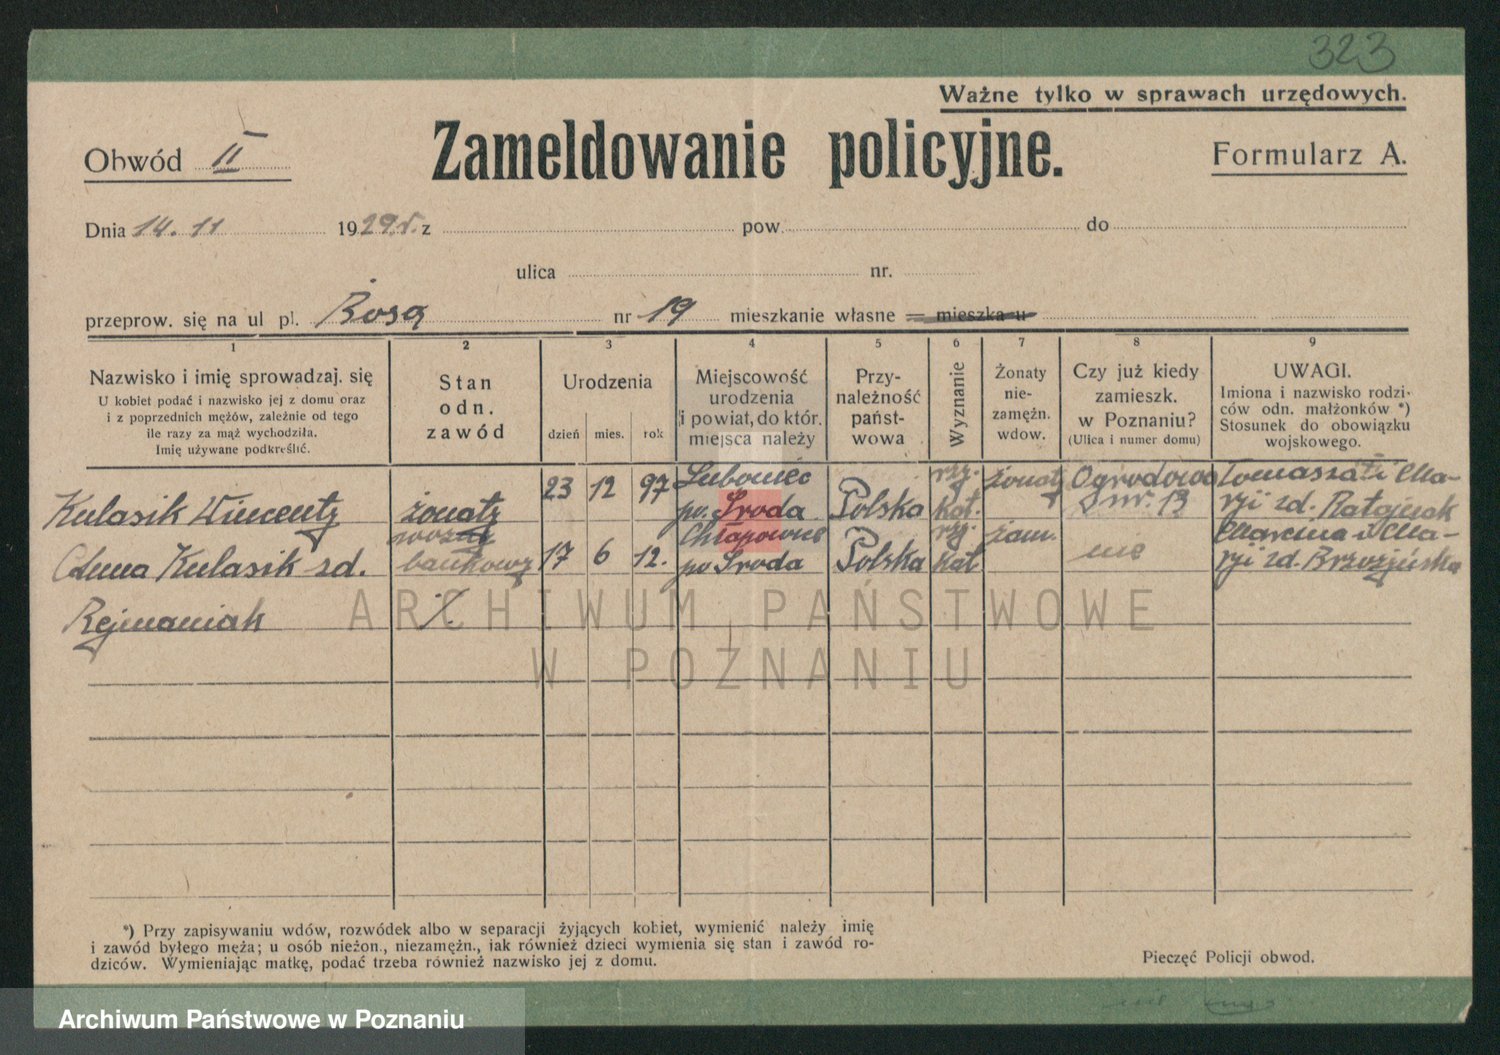 323
Ważne tylko w sprawach urzędowych.
Obwód II
Zameldowanie policyjne.
Formularz A.
Dnia 14. 11 1929 r. z pow. do
ulica nr.
przeprow. się na ul pl. Rosą nr 19 mieszkanie własne = mieszka u
1 2 3 4 5 6 7 8 9
Nazwisko i imię sprowadzaj. się
U kobiet podać i nazwisko jej z domu oraz
i z poprzednich mężów, zależnie od tego
ile razy za mąż wychodziła.
Imię używane podkreślić.
Stan
odn.
zawód
Urodzenia
dzień mies. rok
Miejscowość
urodzenia
i powiat, do któr.
miejsca należy
Przy-
należność
państ-
wowa
Wyznanie
Żonaty
nie-
zamężn.
wdow.
Czy już kiedy
zamieszk.
w Poznaniu?
(Ulica i numer domu)
UWAGI.
Imiona i nazwisko rodzi-
ców odn. małżonków *)
Stosunek do obowiązku
wojskowego.
Kulasik Wincenty
żonaty
woźny
bankowy
23 12 97
Luboniec
po. Środa
Polska
rz.
kat.
żonaty
Ogrodowa
nr. 13
Tomasza i Ma-
ryi zd. Ratajczak
Kulasik zd.
Rejmaniak
17 6 12.
Chłapowo
po Środa
Polska
rz.
kat
zam.
nie
Marcina i Ma-
ryi zd. Brzozińska
ARCHIWUM PAŃSTWOWE
W POZNANIU
*) Przy zapisywaniu wdów, rozwódek albo w separacji żyjących kobiet, wymienić należy imię
i zawód byłego męża; u osób nieżon., niezamężn., jak również dzieci wymienia się stan i zawód ro-
dziców. Wymieniając matkę, podać trzeba również nazwisko jej z domu.
Pieczęć Policji obwod.
Archiwum Państwowe w Poznaniu